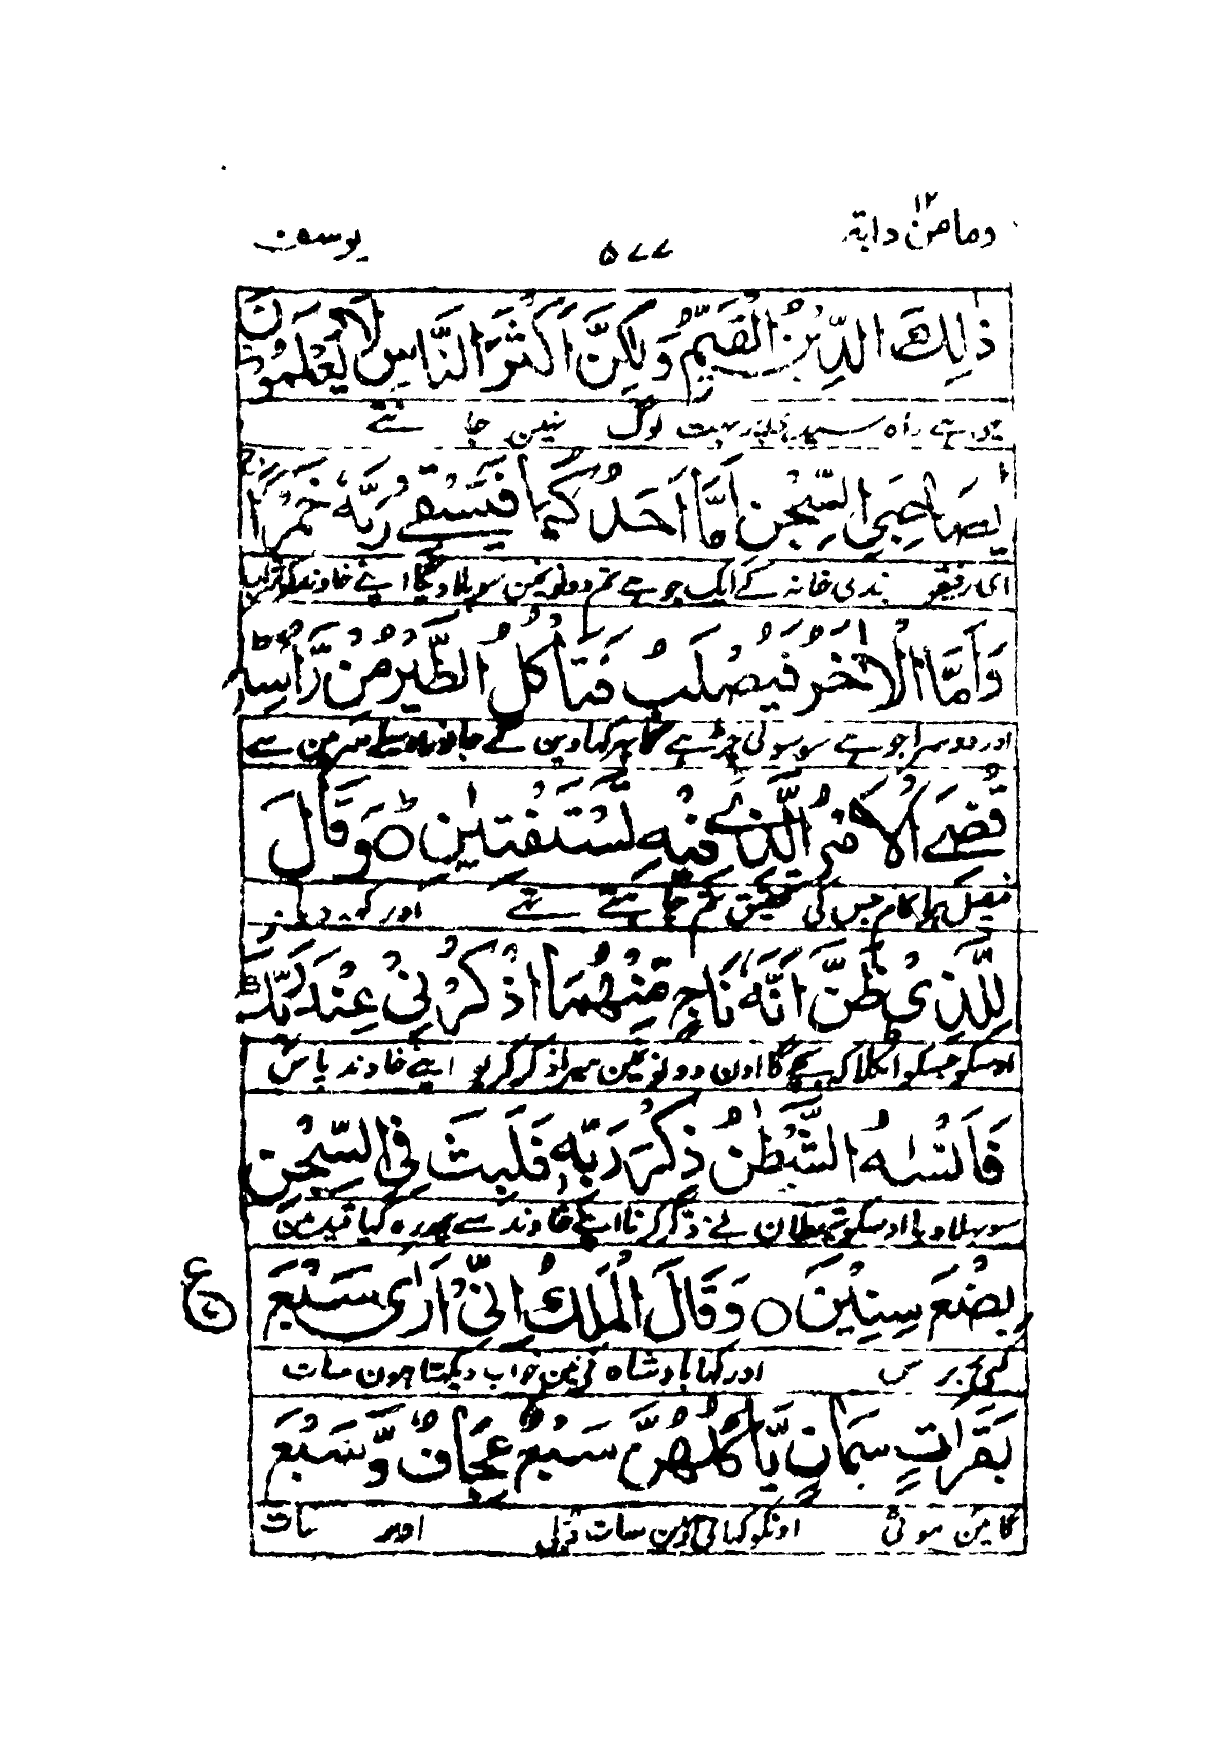 وما من دابۃ ۱۲
۵۷۷
یوسف
ذٰلِكَ الدِّيْنُ الْقَيِّمُ وَلٰكِنَّ اَكْثَرَ النَّاسِ لَا يَعْلَمُوْنَ
یہی ہے راہ بہت لوگ نہین جا نتے
يٰصَاحِبَىِ السِّجْنِ اَمَّا اَحَدُ كُمَا فَيَسْقِىْ رَبَّهٗ خَمْرًا
ای رفیقو بندی خانہ کے ایک جو ہے تم دونونمین سو پلاویگا اپنے خاوند کو شراب
وَاَمَّا الْاٰخَرُ فَيُصْلَبُ فَتَاْكُلُ الطَّيْرُ مِنْ رَّاْسِهٖ
اور دوسرا جو ہے سو سولی چڑہے گا پہر کہاوین گے جانور سر مین سے
قُضِىَ الْاَمْرُ الَّذِىْ فِيْهِ تَسْتَفْتِيٰنِ ؕ وَقَالَ
فیصل ہوا کام جس کی تحقیق تم چا ہتے تھے اور کہہ دیا
لِلَّذِىْ ظَنَّ اَنَّهٗ نَاجٍ مِّنْهُمَا اذْكُرْنِىْ عِنْدَ رَبِّكَ
اوسکو جسکو اٹکلا کہ بچے گا اون دونونمین میرا ذکر کریو اپنے خاوند پاس
فَاَنْسٰىهُ الشَّيْطٰنُ ذِكْرَ رَبِّهٖ فَلَبِثَ فِى السِّجْنِ
سو بہلا دیا اوسکو شیطان نے ذکر کرنا اپنے خاوند سے پہر رہ گیا قید مین
بِضْعَ سِنِيْنَ ۝ وَقَالَ الْمَلِكُ اِنِّىْٓ اَرٰى سَبْعَ
ع
کئی برس اور کہا بادشاہ نے مین خواب دیکہتا ہون سات
بَقَرَاتٍ سِمَانٍ يَّاْكُلُهُنَّ سَبْعٌ عِجَافٌ وَّسَبْعَ
گائین موٹی اونکو کہاتی ہین سات دبلی اور سات